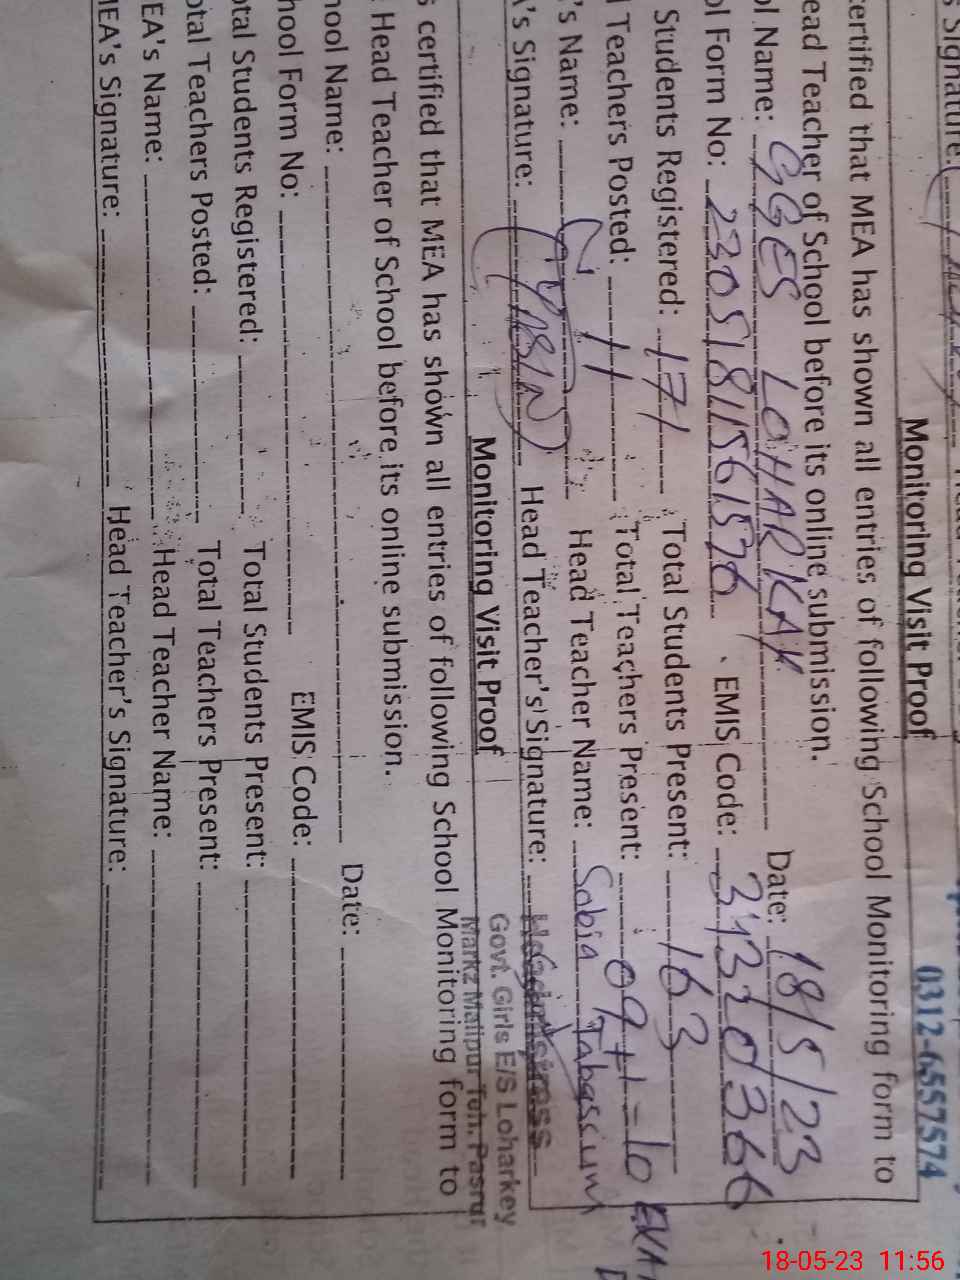 s Signature:
0312-6557574
Monitoring Visit Proof
ertified that MEA has shown all entries of following School Monitoring form to
ead Teacher of School before its online submission.
ol Name: GGES LOHARKAY Date: 18/5/23
ol Form No: EMIS Code:
Students Registered: 171 Total Students Present: 163
l Teachers Posted: 11 Total Teachers Present: 09+1=10
's Name: Head Teacher Name: Sabia Tabassum
A's Signature: Head Teacher's Signature:
Headmistress
Govt. Girls E/S Loharkey
Markz Malipur Teh. Pasrur
Monitoring Visit Proof
s certified that MEA has shown all entries of following School Monitoring form to
Head Teacher of School before its online submission.
hool Name: Date:
hool Form No: EMIS Code:
otal Students Registered: Total Students Present:
otal Teachers Posted: Total Teachers Present:
EA's Name: Head Teacher Name:
MEA's Signature: Head Teacher's Signature:
18-05-23 11:56